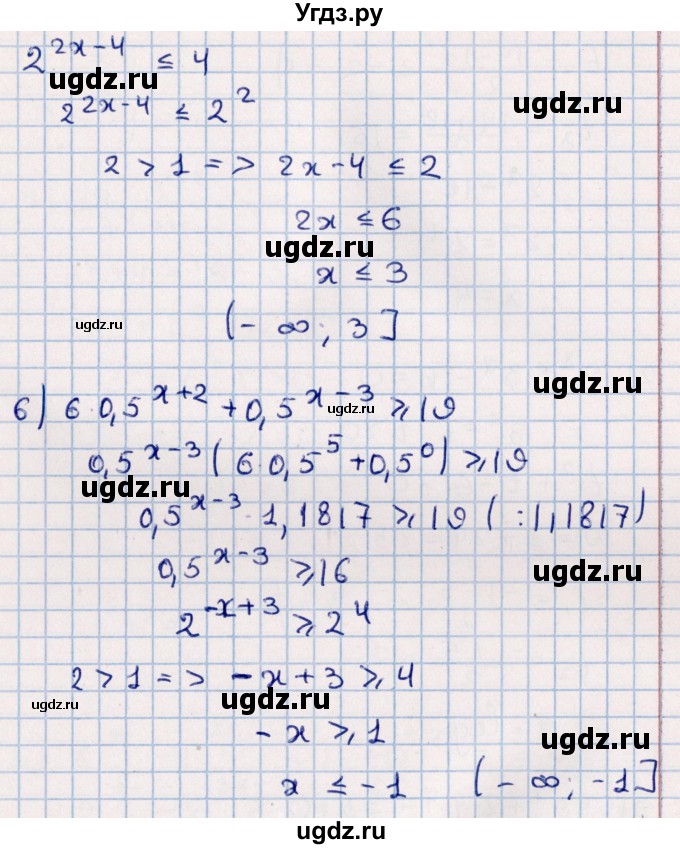 Угдз.ру
2^(2x-4) ≤ 4
ugdz.ru
ugdz.ru
2^(2x-4) ≤ 2^2
2 > 1 => 2x-4 ≤ 2
2x ≤ 6
ugdz.ru
x ≤ 3
ugdz.ru
(- ∞; 3]
ugdz.ru
б) 6·0,5^(x+2) + 0,5^(x-3) ≥ 19
ugdz.ru
0,5^(x-3) (6·0,5^5 + 0,5^0) ≥ 19
ugdz.ru
0,5^(x-3) · 1,1817 ≥ 19 ( :1,1817)
0,5^(x-3) ≥ 16
ugdz.ru
2^(-x+3) ≥ 2^4
2 > 1 => -x+3 ≥ 4
ugdz.ru
ugdz.ru
-x ≥ 1
ugdz.ru
x ≤ -1 (- ∞; -1]
ugdz.ru